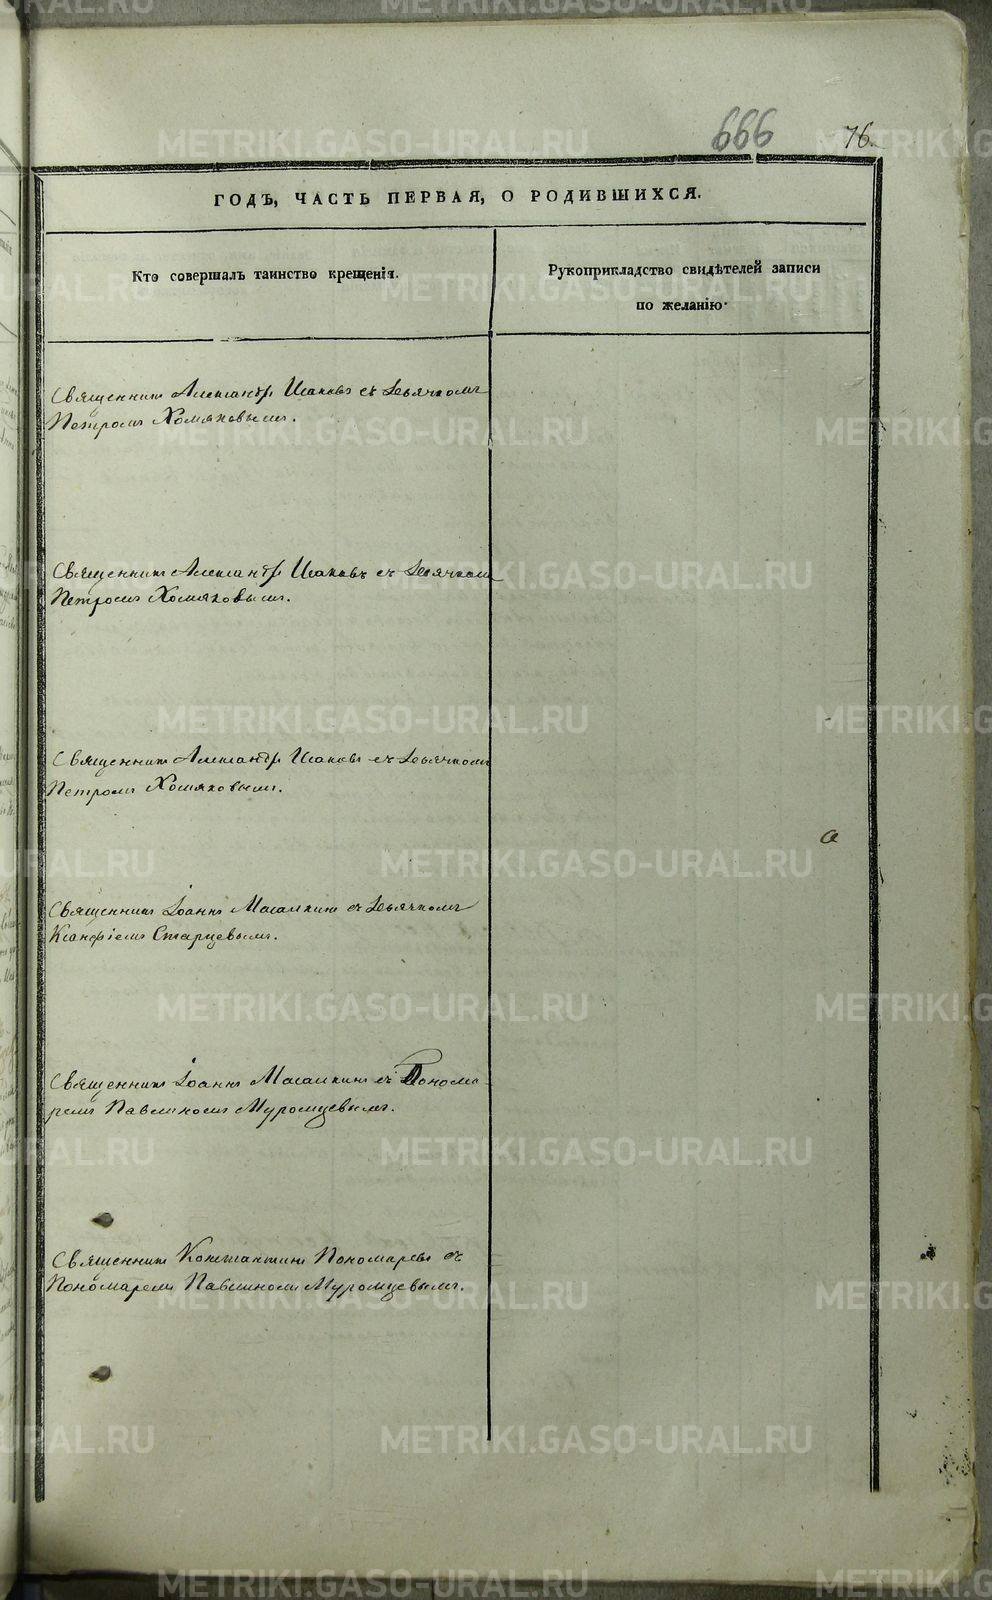 666
76.
ГОДЪ, ЧАСТЬ ПЕРВАЯ, О РОДИВШИХСЯ.
Кто совершалъ таинство крещенія.
Рукоприкладство свидѣтелей записи
по желанію.
Священникъ Александръ Исаковъ съ Дьячкомъ
Петромъ Хомяковымъ.
Священникъ Александръ Исаковъ съ Дьячкомъ
Петромъ Хомяковымъ.
Священникъ Александръ Исаковъ съ Дьячкомъ
Петромъ Хомяковымъ.
Священникъ Іоаннъ съ Дьячкомъ
Ксанфіемъ Старцевымъ.
Священникъ Іоаннъ съ Понома-
ремъ Павлиномъ Муромцевымъ.
Священникъ Константинъ Пономаревъ съ
Пономаремъ Павлиномъ Муромцевымъ.
METRIKI.GASO-URAL.RU